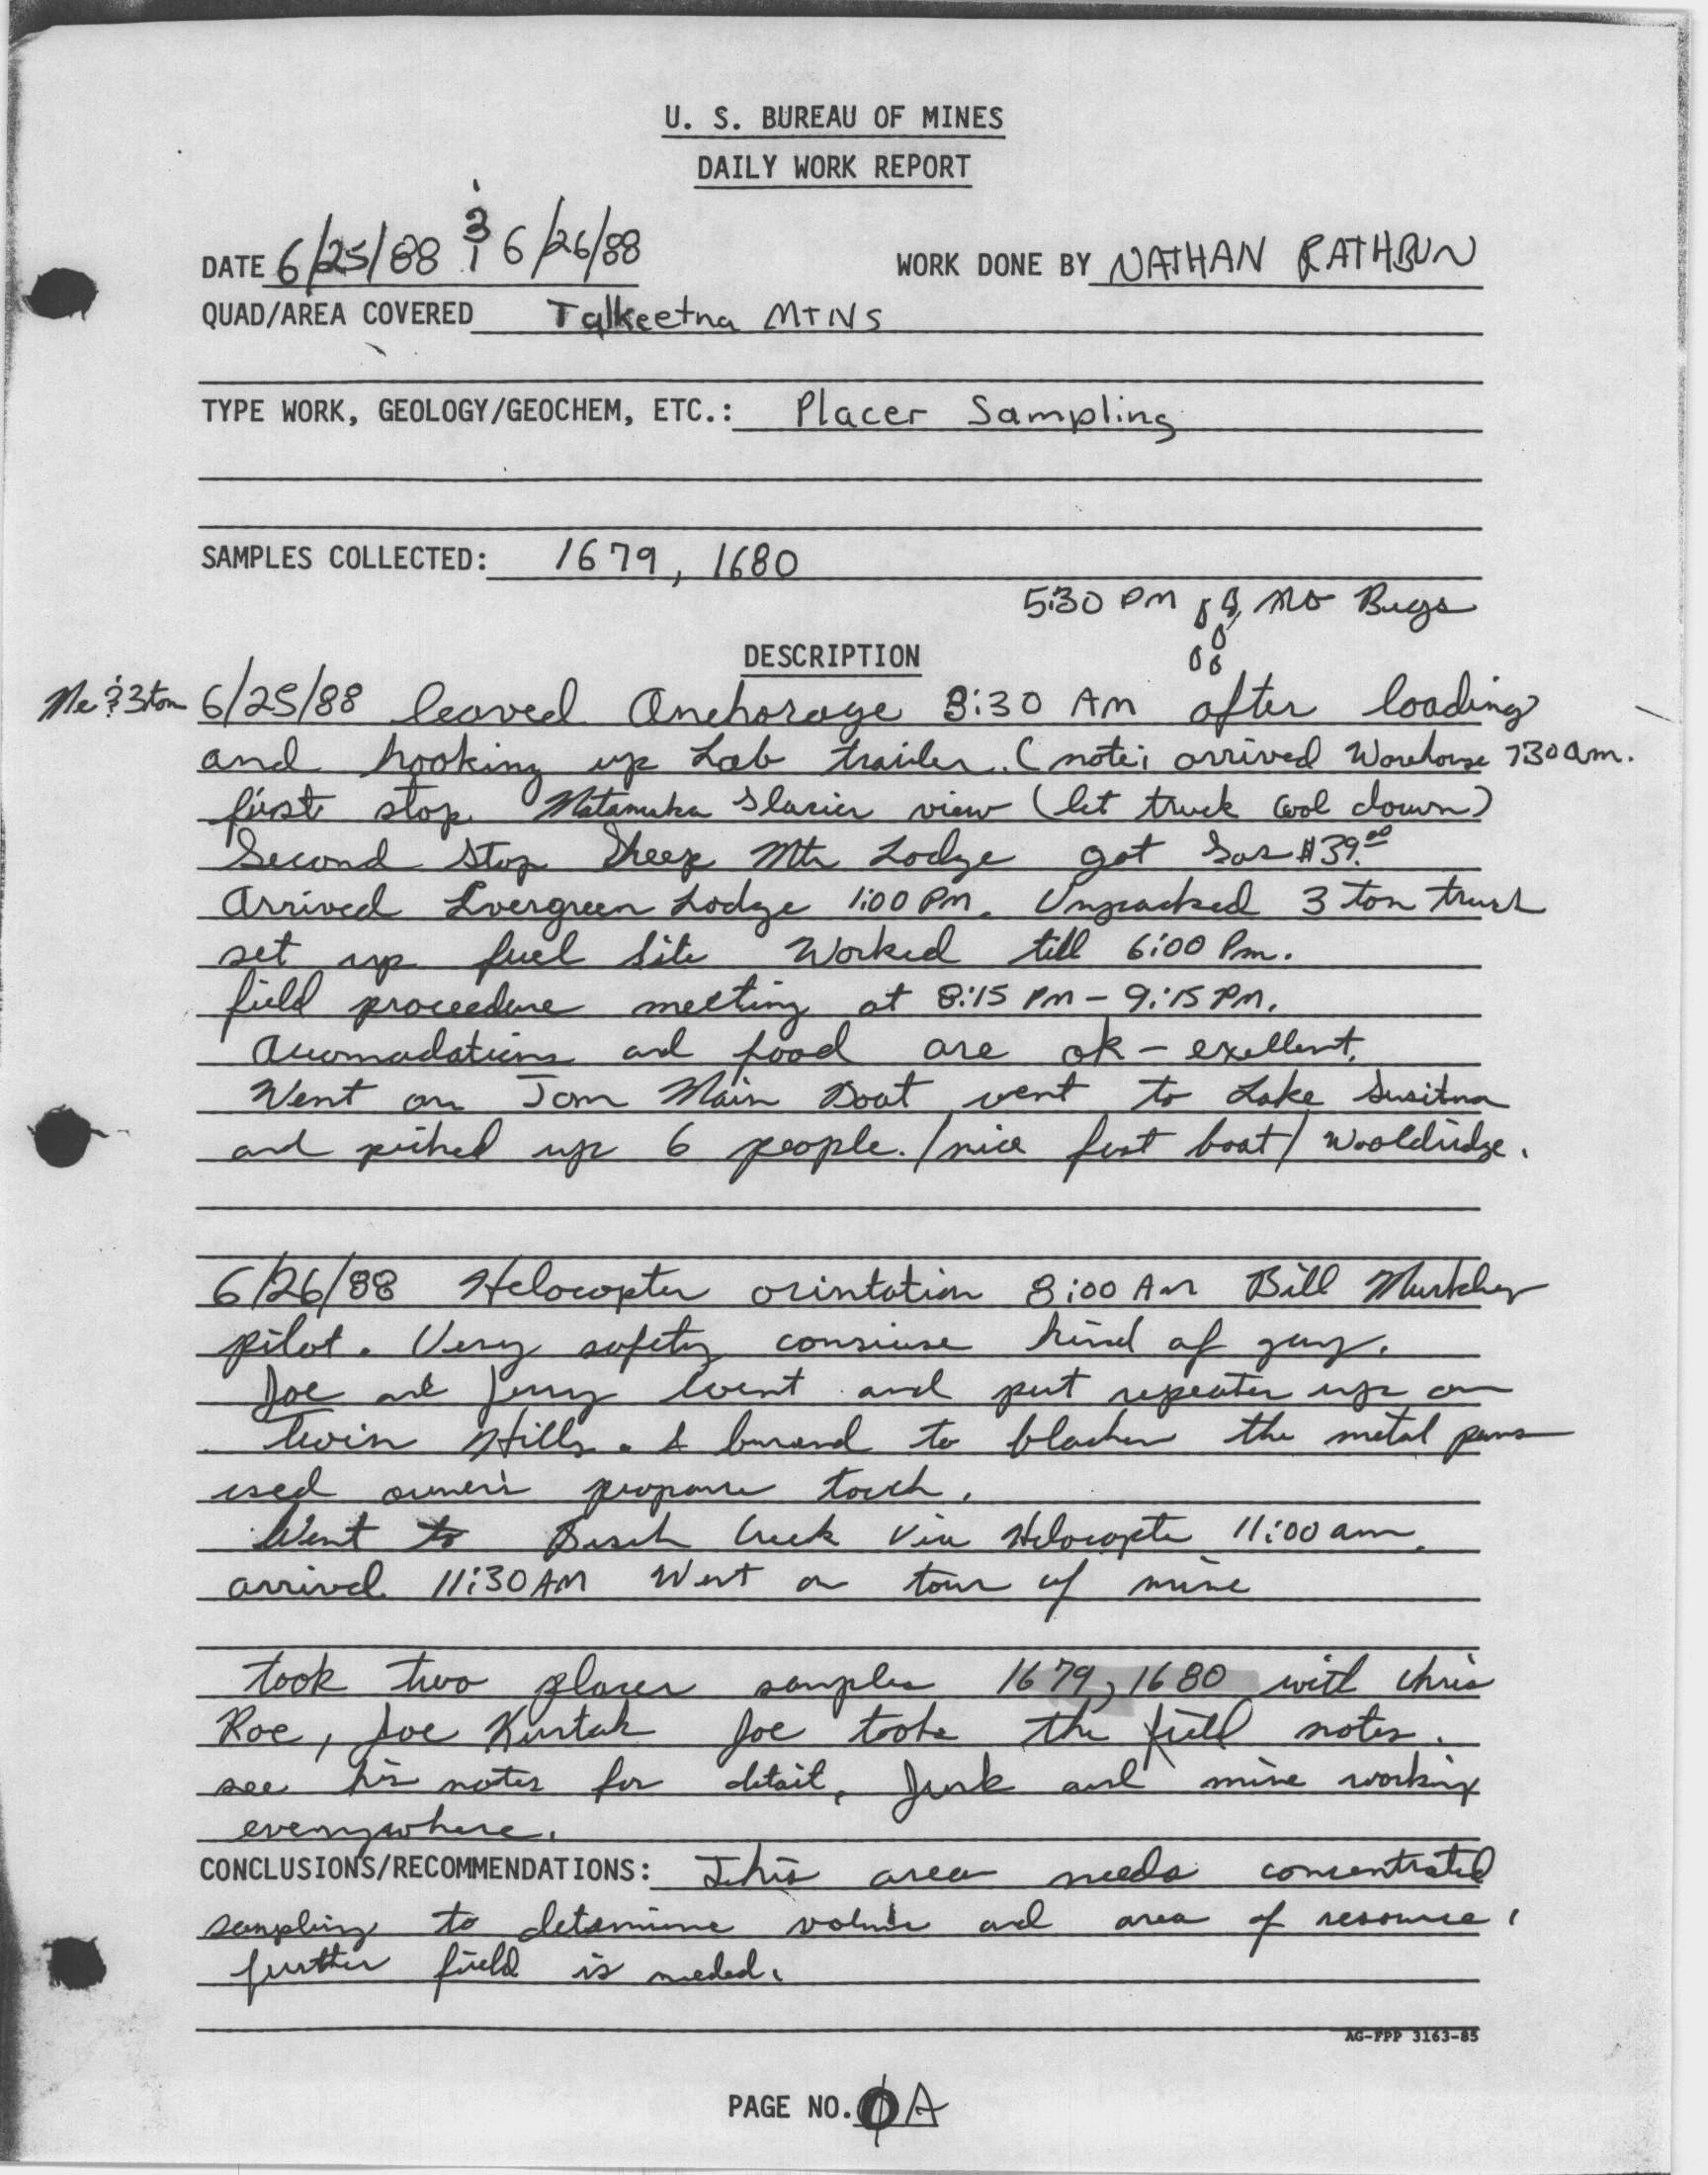 U. S. BUREAU OF MINES
DAILY WORK REPORT
DATE 6/25/88 & 6/26/88 WORK DONE BY NATHAN RATHBUN
QUAD/AREA COVERED Talkeetna MTNS
TYPE WORK, GEOLOGY/GEOCHEM, ETC.: Placer Sampling
SAMPLES COLLECTED: 1679, 1680
5:30 PM No Bugs
DESCRIPTION
Me & 3 ton 6/25/88 leaved Anchorage 8:30 AM after loading
and hooking up Lab trailer. (note: arrived Warehouse 730 am.
first stop Matanuka Glacier view (let truck cool down)
Second stop Sheep Mtn Lodge got gas $39.00
Arrived Evergreen Lodge 1:00 PM. Unpacked 3 ton truck
set up fuel site Worked till 6:00 Pm.
field proceedure meeting at 8:15 PM - 9:15 PM.
Accomodations and food are ok - exellent.
Went on Tom Main Boat went to Lake Susitna
and picked up 6 people. / nice fast boat / Wooldridge.
6/26/88 Helocopter orintation 8:00 AM Bill
pilot. Very safety consiuse kind of guy.
Joe and Jerry went and put repeater up on
twin Hills. I burand to blacken the metal pans
used owner's propane torch.
Went to Creek Via Helocopter 11:00 am.
arrived 11:30 AM Went on tour of mine
took two placer samples 1679, 1680 with Chris
Roe, Joe Kurtak Joe took the field notes.
see his notes for detail, Junk and mine working
everywhere.
CONCLUSIONS/RECOMMENDATIONS: This area needs concentrated
sampling to determine volume and area of resource,
further field is needed.
AG-FPP 3163-85
PAGE NO. A